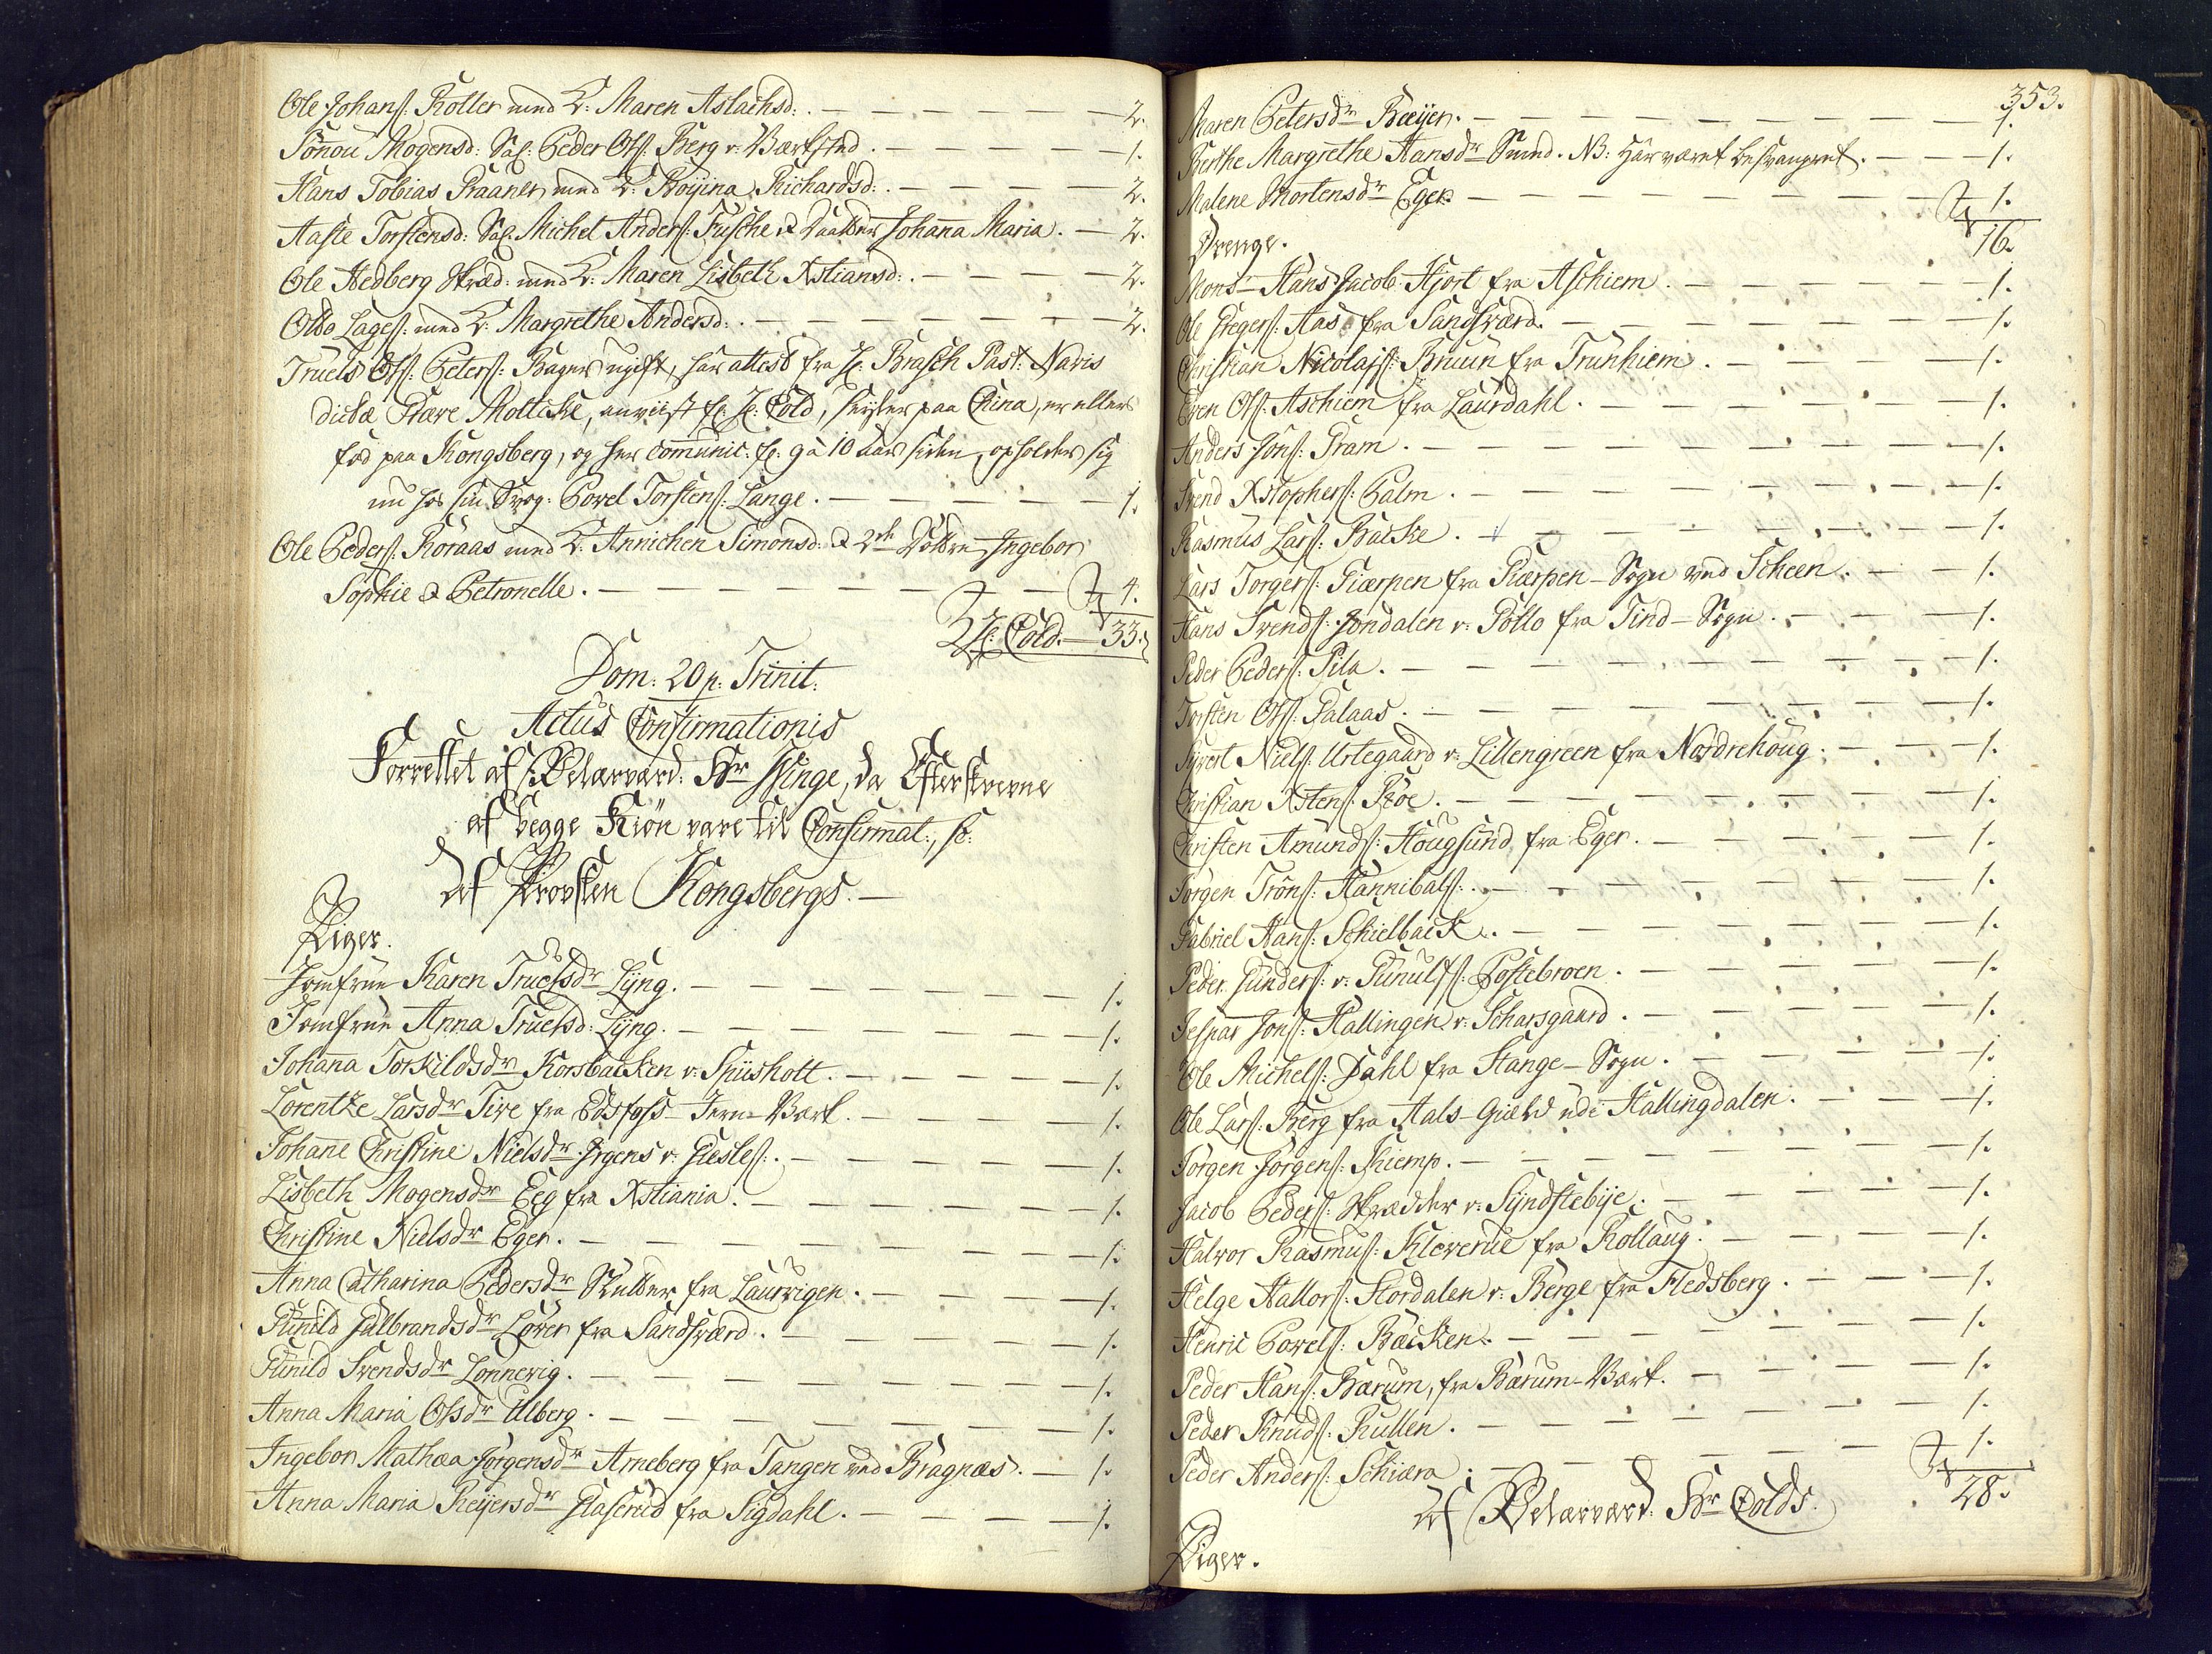 Ole Johans: Koller med K: Maren Aslachsd: . — — — — — 2.
Sønou Mogensd: Sal: Peder Ols: Berg v: Værksted . — — — — 1.
Hans Tobias Praaner med K: Roijina Richardsd: . — — — — 2.
Aaste Torstensd: Sal: Michel Anders: Fusche & Daatter Johaña Maria . — 2.
Ole Hedberg Skræd: med K: Maren Lisbeth Xstiansd: . — — — — 2.
Otto Lages: med K: Margrethe Andersd: . — — — — 2.
Truels Ols: Peters: Bager ugift, har attest fra H: Brasch Past: Navis
dictæ Græve Moltcke, anviist fr: H: Cold, seyler paa China, er ellers
fød paa Kongsberg, og her com̃unic: for 9 à 10 aar siden, opholder sig
nu hos sin Svog: Povel Torstens: Lange . — — — — 1.
Ole Peders: Røraas med K: Annichen Simonsd: & 2de Døttre, Ingebor
Sophie & Petronelle . — — — — 4.
H: Cold. — 33.
Dom: 20 p: Trinit:
Actus Confirmationis
Forrettet af Velærværd: Hr Hinge, da Efterskrevne
af begge Kiøn vare til Confirmat:, so:
Af Provsten Kongsbergs. —
Piger.
Jomfrue Karen Truelsdr Lÿng. — — — — 1.
Jomfrue Anna Truelsd: Lÿng. — — — — 1.
Johaña Torkildsdr Korsbacken v: Spiisholt. — — — — 1.
Lorentze Larsdr Tire fra Edsfoss Jern-Værk. — — — — 1.
Johane Christine Nielsdr Jrgens v: Giesles: . — — — — 1.
Lisbeth Mogensdr Eeg fra Xstiania. — — — — 1.
Christine Nielsdr Eger. — — — — 1.
Anna Catharina Pedersdr Skutter fra Laurvigen. — — — — 1.
Guñild Gulbrandsdr Løver fra Sandsværd. — — — — 1.
Guñild Svendsdr Lonnevig. — — — — 1.
Anna Maria Olsdr Ulberg. — — — — 1.
Ingebor Mathæa Jørgensdr Arneberg fra Tangen ved Bragnæs. — 1.
Anna Maria Reijersdr Glaserud fra Sigdahl. — — — — 1.
353.
Maren Petersdr Bæÿer. — — — — 1.
Berthe Margrethe Hansdr Smed. NB: Har været besvangret. — — 1.
Malene Mortensdr Eger. — — — — 1.
16.
Drenge.
Monsr Hans Jacob Hjort fra Aschiem. — — — — 1.
Ole Gregers: Aas fra Sandsværd. — — — — 1.
Christian Nicolajs: Bruun fra Trunhiem. — — — — 1.
Even Ols: Aschiem fra Laurdahl. — — — — 1.
Anders Jons: Gram. — — — — 1.
Svend Xstophers: Palm. — — — — 1.
Rasmus Lars: Backe. — — — — 1.
Lars Torgers: Giærpen fra Giærpen-Sogn ved Scheen. — — 1.
Hans Svends: Jondalen v: Gollo fra Tind-Sogn. — — 1.
Peder Peders: Pila. — — — — 1.
Torsten Ols: Galaas. — — — — 1.
Syvert Niels: Ustegaard v: Lillengreen fra Nordrehoug. — — 1.
Christian Xstens: Røe. — — — — 1.
Christen Amunds: Hougsund fra Eger. — — — — 1.
Jørgen Trons: Hannibals: . — — — — 1.
Gabriel Hans: Schielback. — — — — 1.
Peder Gunders: v: Gunulfs: Postebroen. — — — — 1.
Jespar Jons: Hallingen v: Scharsgaard. — — — — 1.
Ole Michels: Dahl fra Stange-Sogn. — — — — 1.
Ole Lars: Berg fra Aals-Giæld udi Hallingdalen. — — 1.
Jørgen Jørgens: Skiemp. — — — — 1.
Jacob Peders: Skrædder v: Sÿndstebÿe. — — — — 1.
Halvor Rasmus: Kleverue fra Rollaug. — — — — 1.
Helge Hallors: Stordalen v: Berge fra Fledsberg. — — — 1.
Henric Povels: Bæcken. — — — — 1.
Peder Hans: Bærum, fra Bærum-Værk. — — — — 1.
Peder Knuds: Kullen. — — — — 1.
Peder Anders: Schiæra. — — — — 1.
28.
Af Velærværd. Hr Colds.
Piger.